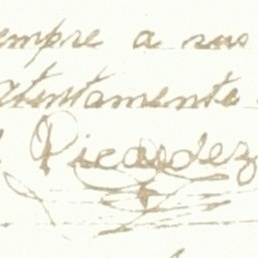 empre a sus
atentamente
Picardez